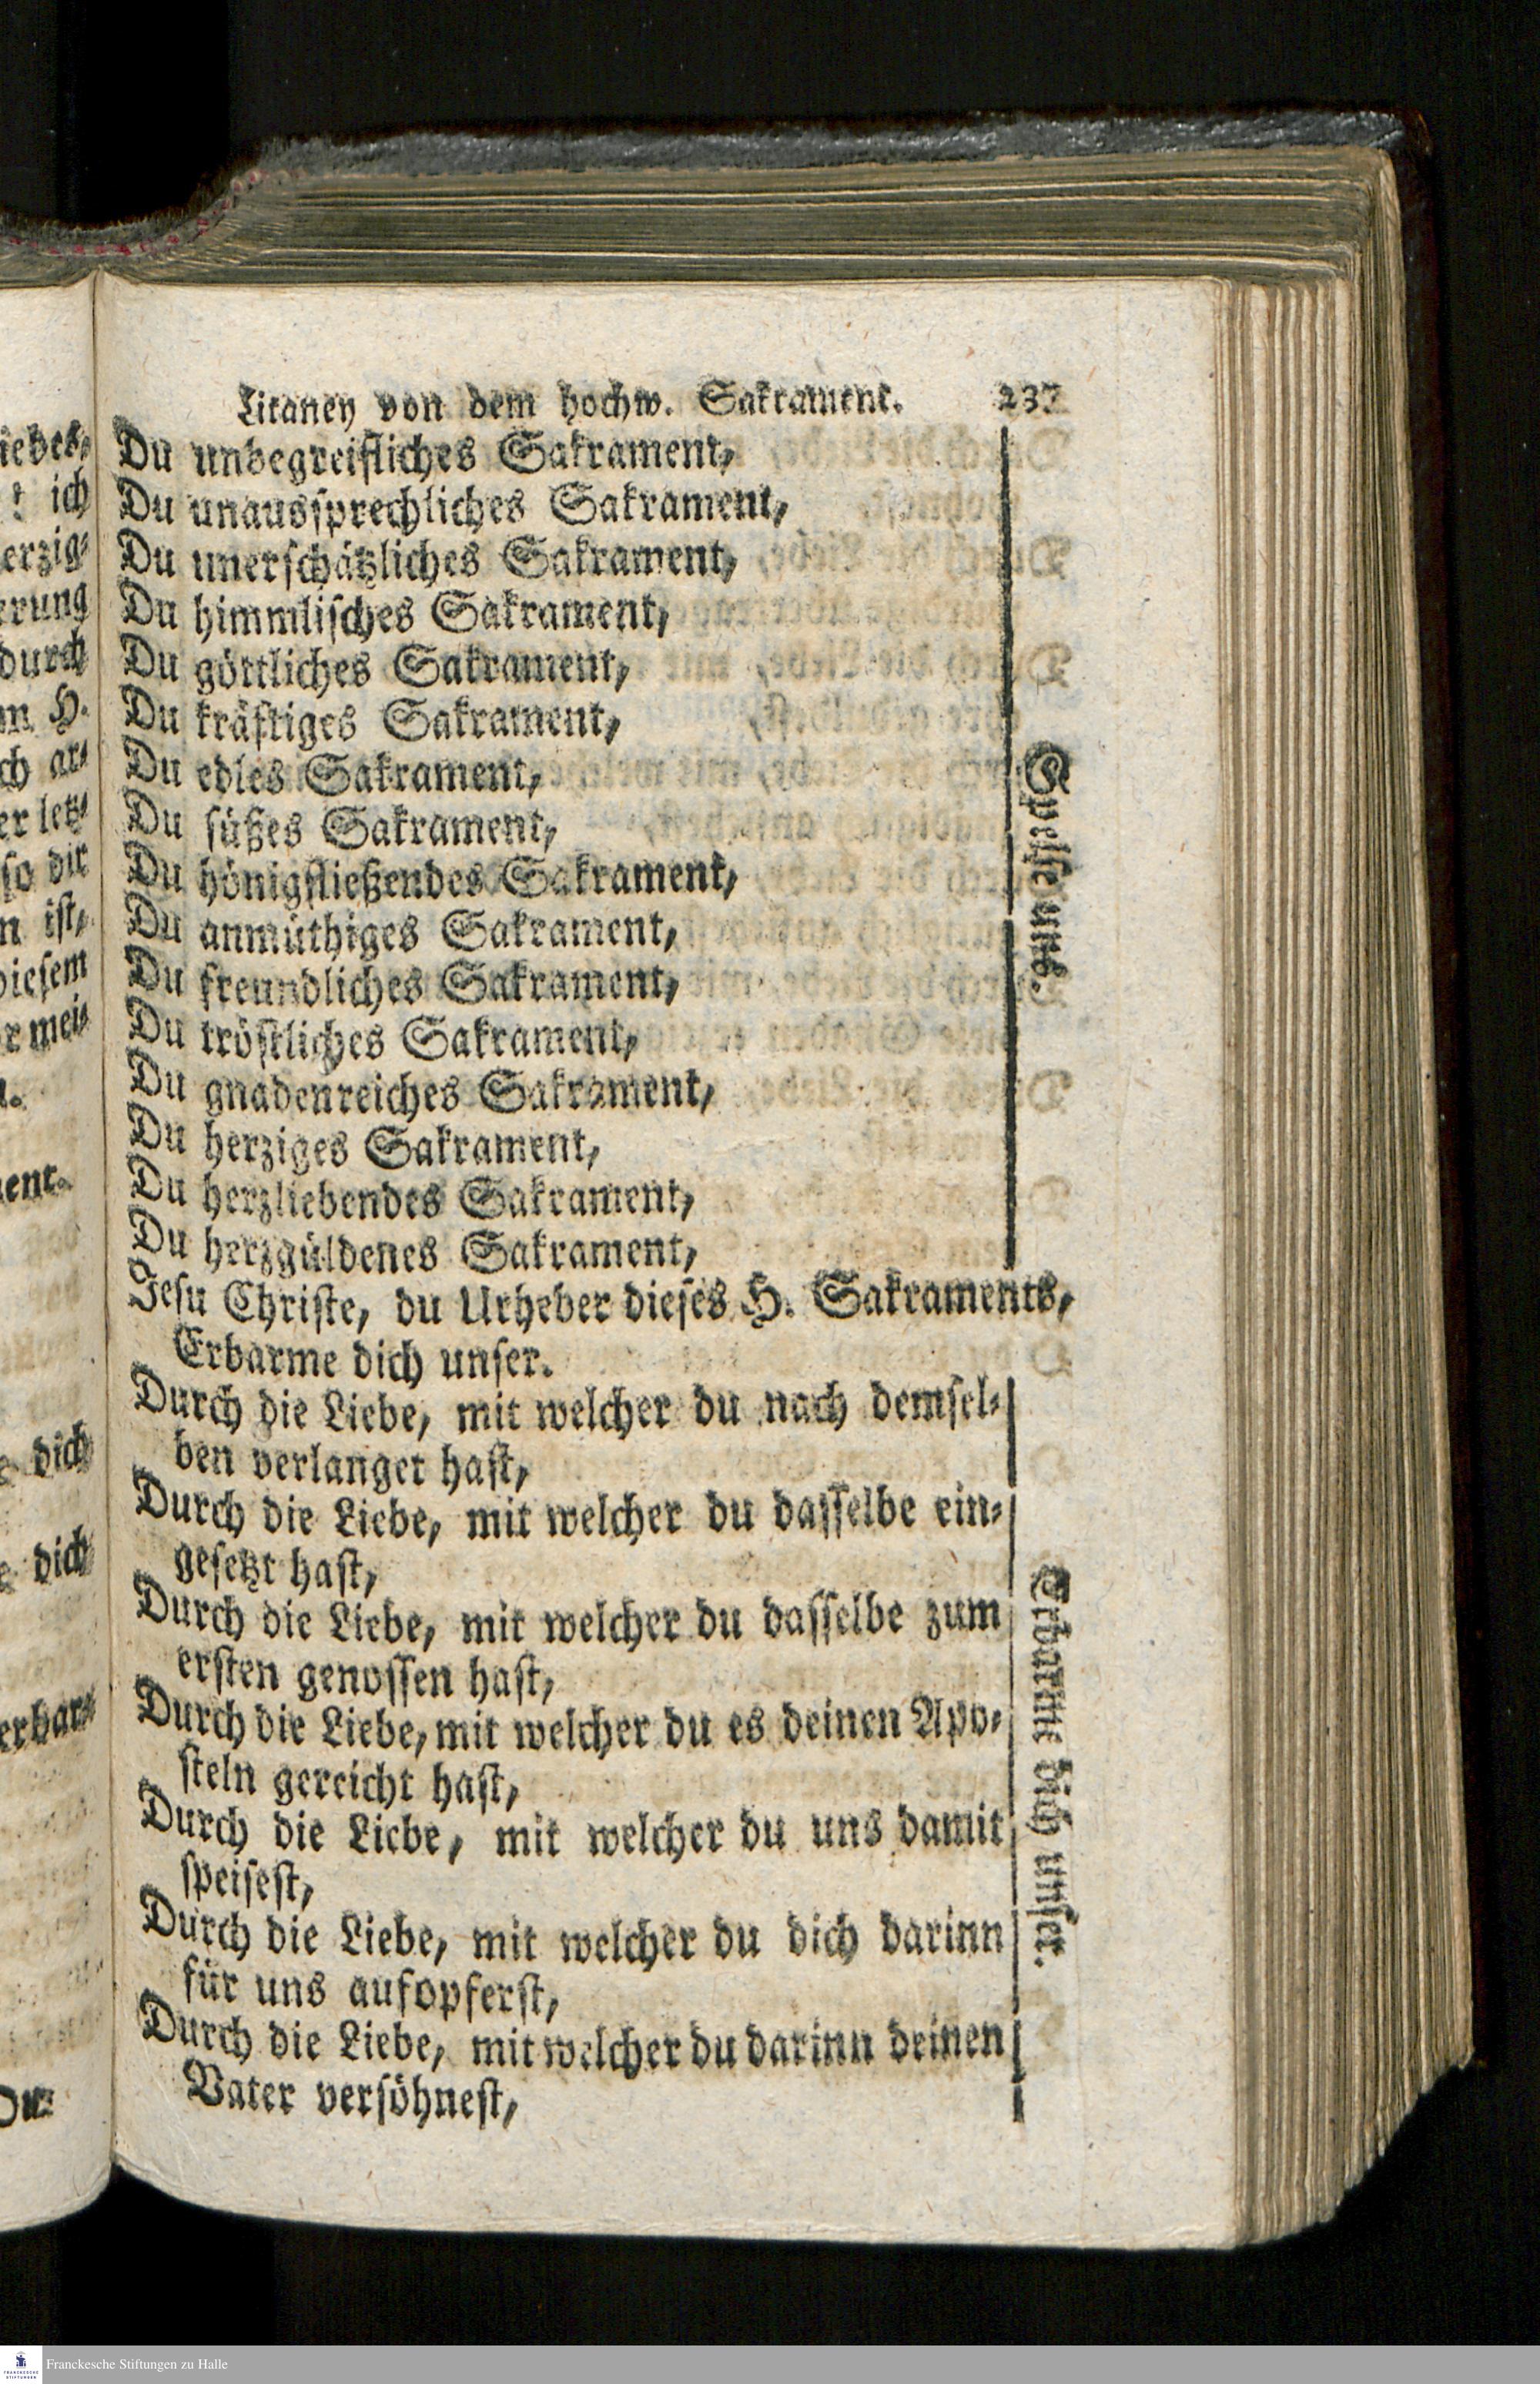 Litaney von dem hochw. Sakrament. 237
Du unbegreifliches Sakrament,
Du unaussprechliches Sakrament,
Du unerschätzliches Sakrament,
Du himmlisches Sakrament,
Du göttliches Sakrament,
Du kräftiges Sakrament,
Du edles Sakrament,
Du süßes Sakrament,
Du hönigfließendes Sakrament,
Du anmüthiges Sakrament,
Du freundliches Sakrament,
Du tröstliches Sakrament,
Du gnadenreiches Sakrament,
Du herziges Sakrament,
Du herzliebendes Sakrament,
Du herzgüldenes Sakrament,
Speise uns.
Jesu Christe, du Urheber dieses H. Sakraments,
Erbarme dich unser.
Durch die Liebe, mit welcher du nach demsel-
ben verlanget hast,
Durch die Liebe, mit welcher du dasselbe ein-
gesetzt hast,
Durch die Liebe, mit welcher du dasselbe zum
ersten genossen hast,
Durch die Liebe, mit welcher du es deinen Apo-
steln gereicht hast,
Durch die Liebe, mit welcher du uns damit
speisest,
Durch die Liebe, mit welcher du dich darinn
für uns aufopferst,
Durch die Liebe, mit welcher du darinn deinen
Vater versöhnest,
Erbarme dich unser.
iebes-
ich
erzig-
erung
durch
m H.
ch ar-
er letz-
so die
n ist,
diesem
r mei-
ent.
dich
dich
erbar-
Franckesche Stiftungen zu Halle